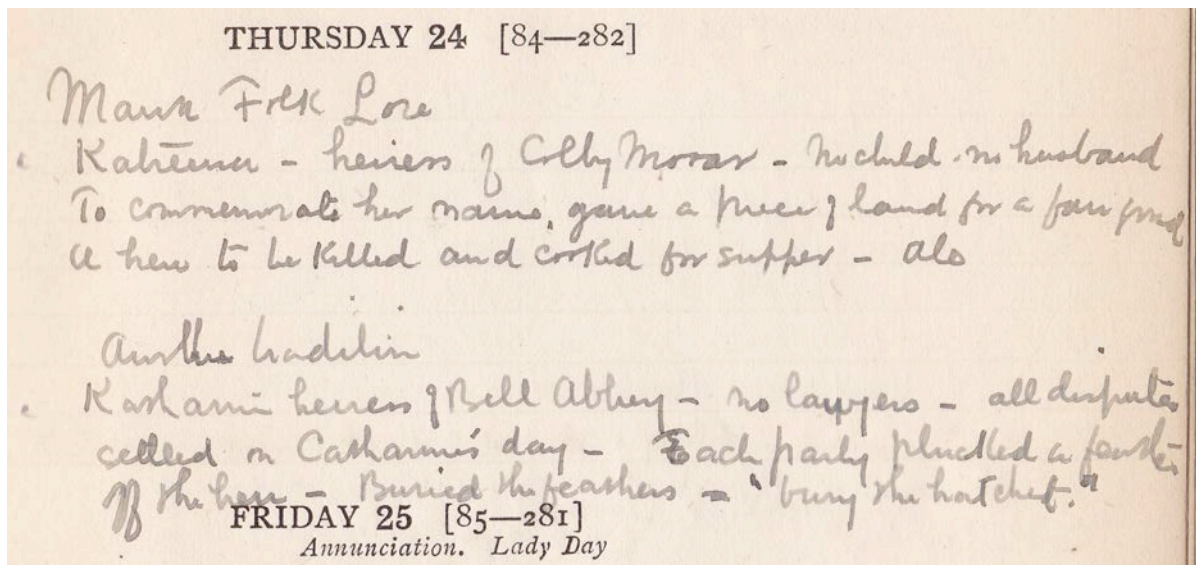 THURSDAY 24 [84—282]
Manx Folk Lore
Katreena - heiress of Colby Mooar - no child - no husband
To commemorate her name, gave a piece of land for a fair
A hen to be killed and cooked for supper - also
Another tradition
Katharine heiress of Bell Abbey - no lawyers - all disputes
settled on Catharine's day - Each party plucked a feather
off the hen - Buried the feathers - "bury the hatchet."
FRIDAY 25 [85—281]
Annunciation. Lady Day